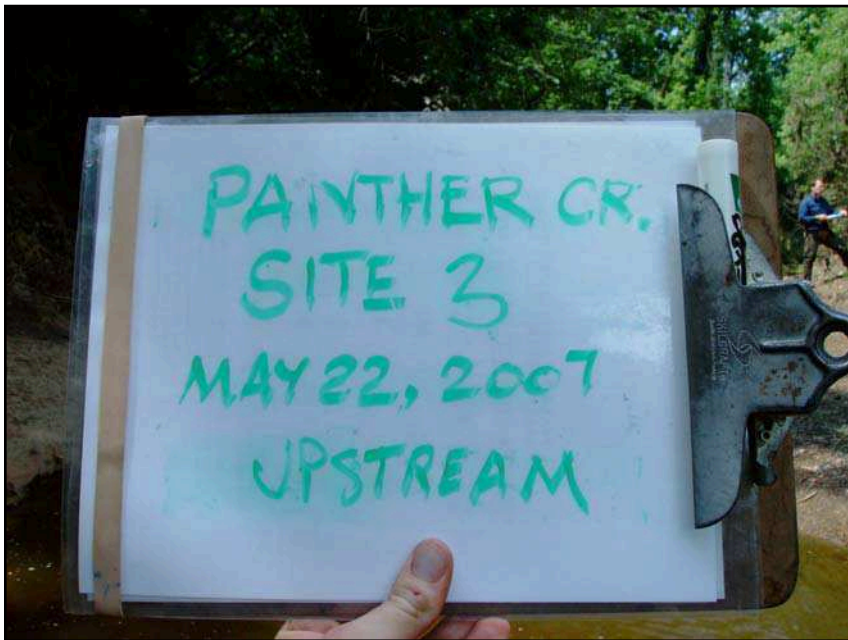 PANTHER CR.
SITE 3
MAY 22, 2007
UPSTREAM